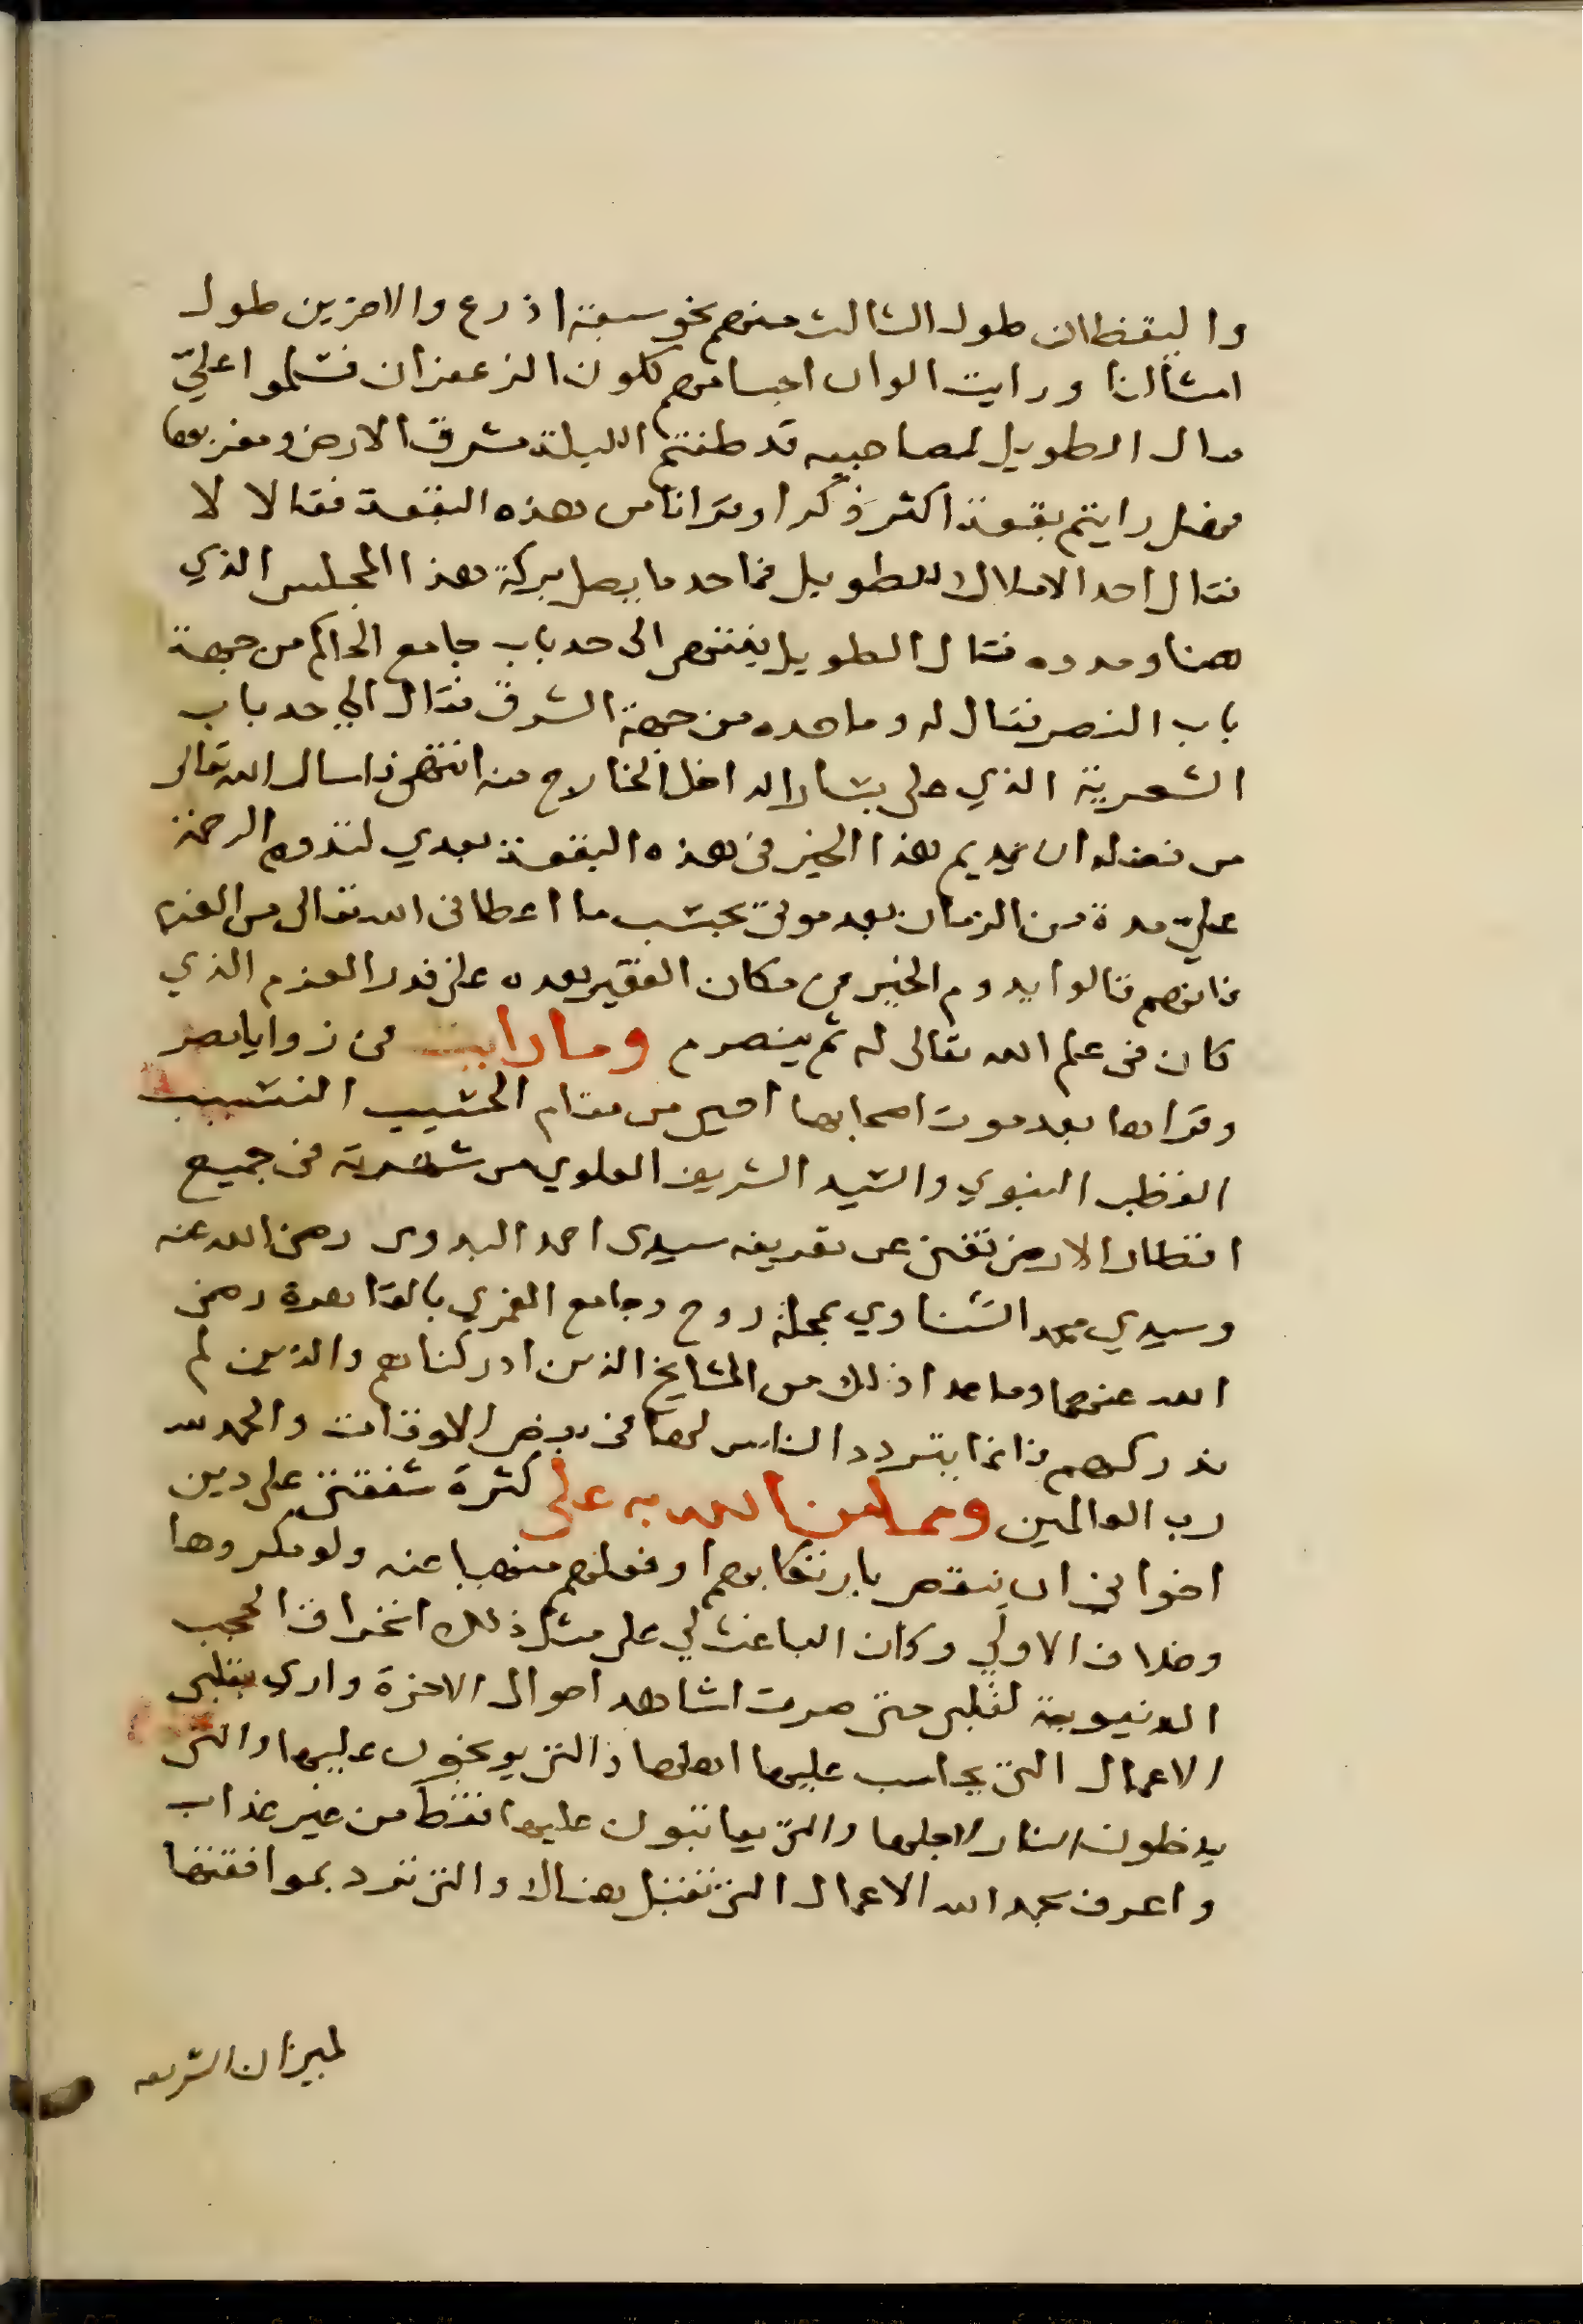 واليقظان طول الثالث منهم نحو سبعة اذرع والاخرين طول
امثالنا ورايت الوان اجسامهم كلون الزعفران فسلموا عليّ
وقال الطويل لصاحبيه قد طفتم الليلة مشرق الارض ومغربها
فهل رايتم بقعة اكثر ذكرا وقرانا من هذه البقعة فقالا لا
فقال احد الاملاك للطويل فما حد ما يصل بركة هذا المجلس الذي
هنا ومدده فقال الطويل ينتهى الى حد باب جامع الحاكم من جهة
باب النصر فقال له وما حده من جهة الشرق فقال الي حد باب
الشعرية الذي على يسار الداخل الخارج منه انتهى فاسال الله تعالى
من فضله ان يديم هذا الخير فى هذه البقعة بعدي لتدوم الرحمة
عليّ مدة من الزمان بعد موتي بحسب ما اعطانى الله تعالى من العزم
فانهم قالوا يدوم الخير فى مكان الفقير بعده على قدر العزم الذي
كان فى علم الله تعالى له ثم ينصرم وما رايت فى زوايا مصر
وقراها بعد موت اصحابها اخير من مقام الحسيب النسيب
القطب النبوي والسيد الشريف العلوي من شهرته فى جميع
اقطار الارض تغنى عن تعريفه سيدى احمد البدوى رضى الله عنه
وسيدي محمد الشناوي بمحلة روح وجامع الغمري بالقاهرة رضى
الله عنهما وما عدا ذلك من المشايخ الذين ادركناهم والذين لم
ندركهم فانما يتردد الناس لها فى بعض الاوقات والحمد لله
رب العالمين ومما من الله به على كثرة شفقتى على دين
اخوانى ان ينقص بارتكابهم او فعلهم منهيا عنه ولو مكروها
وخلاف الاولي وكان الباعث لي على مثل ذلك انخراق الحجب
الدنيوية لقلبى حتى صرت اشاهد احوال الاخرة وارى بقلبى
الاعمال التى يحاسب عليها اهلها والتى يوبخون عليها والتى
يدخلون النار لاجلها والتى يعاتبون عليها فقط من غير عذاب
واعرف بحمد الله الاعمال التى تقبل هناك والتى ترد بموافقتها
لميزان الشريعه